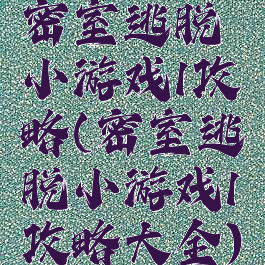 密室逃脱
小游戏1攻
略(密室逃
脱小游戏1
攻略大全)